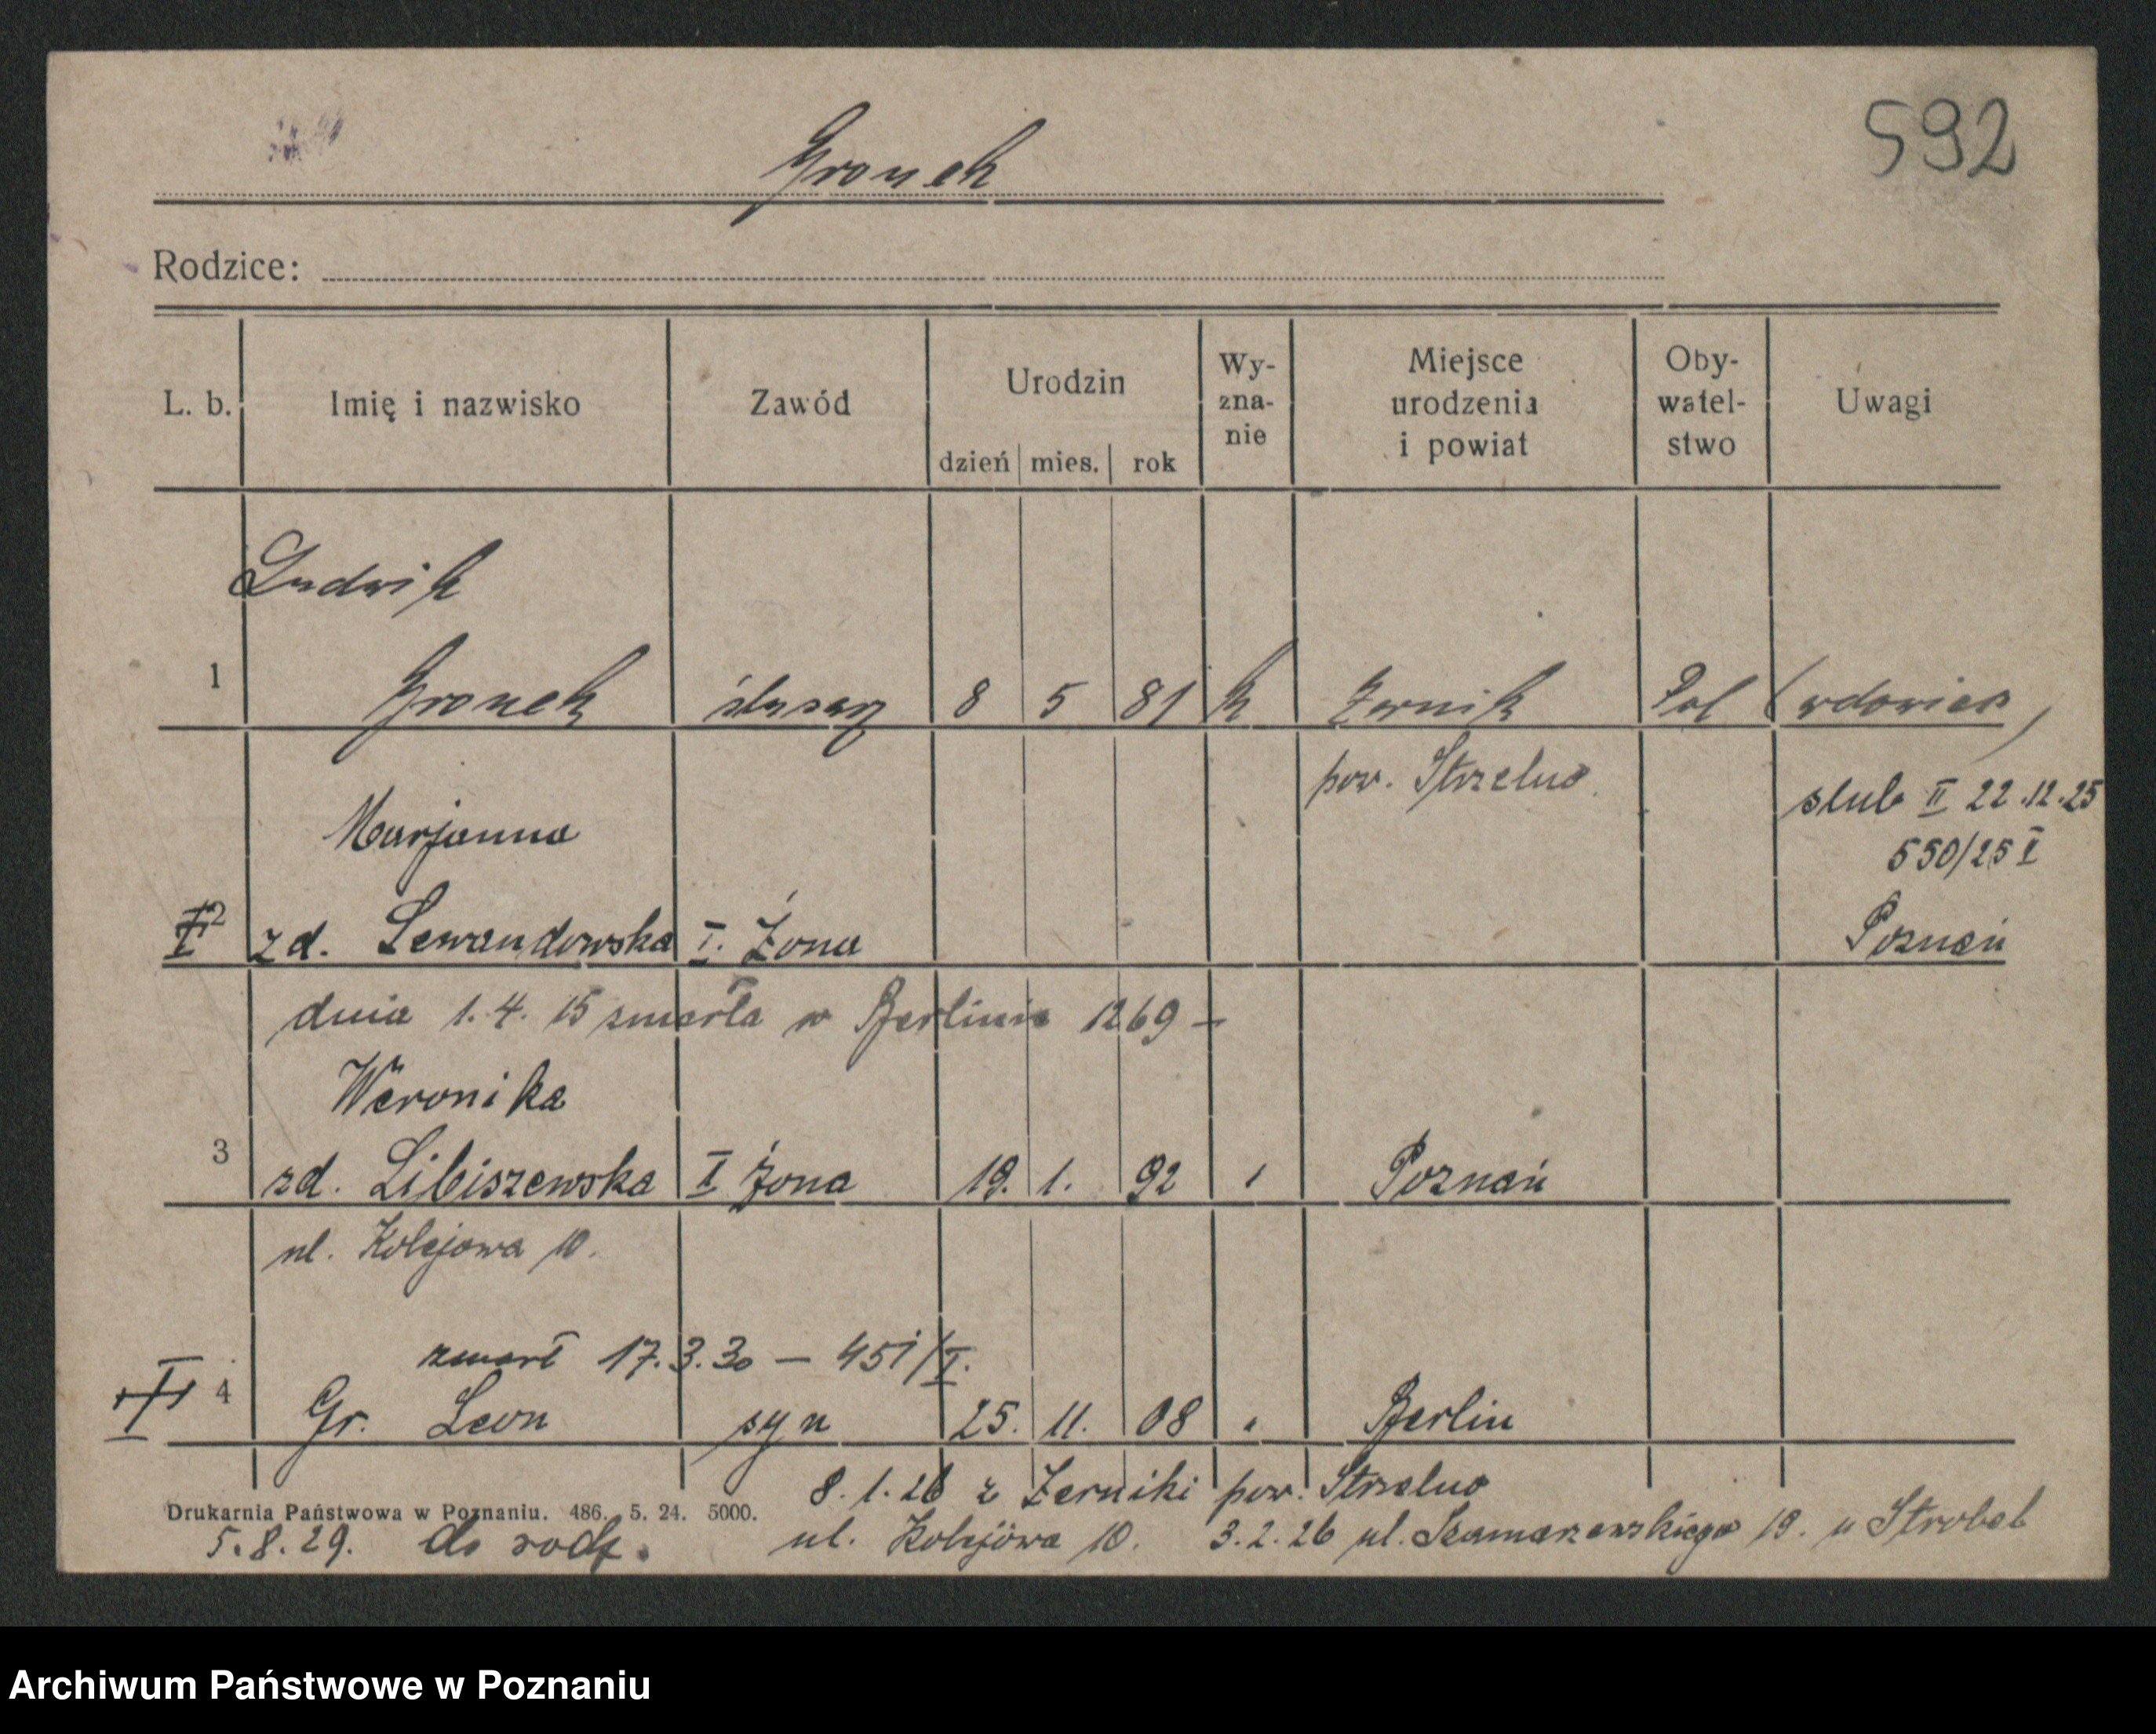 592
Gronek
Rodzice:
L. b. Imię i nazwisko Zawód Urodzin dzień mies. rok Wy-zna-nie Miejsce urodzenia i powiat Oby-watel-stwo Uwagi
Ludwik
1 Gronek ślusarz 8 5 81 k Żernik Pol (wdowiec)
pow. Strzelno
ślub II 22.12.25
Marjanna
550/25 I
2 zd. Lewandowska I. Żona Poznań
dnia 1.4.15 zmarła w Berlinie 1269 –
Weronika
3 zd. Libiszewska II Żona 19. 1. 92 " Poznań
ul. Kolejowa 10.
zmarł 17.3.30 — 451/I.
4 Gr. Leon syn 25. 11. 08 " Berlin
8.1.26 z Żerniki pow. Strzelno
Drukarnia Państwowa w Poznaniu. 486. 5. 24. 5000.
5.8.29. do rodz. ul. Kolejowa 10. 3.2.26 ul. Szamarzewskiego 19. u Strobel
Archiwum Państwowe w Poznaniu